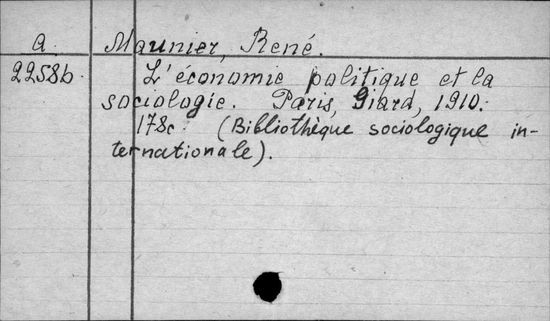 a. Maunier, René.
2258b. L'économie politique et la
sociologie. Paris, Giard, 1910.
178c. (Bibliothèque sociologique in-
ternationale).